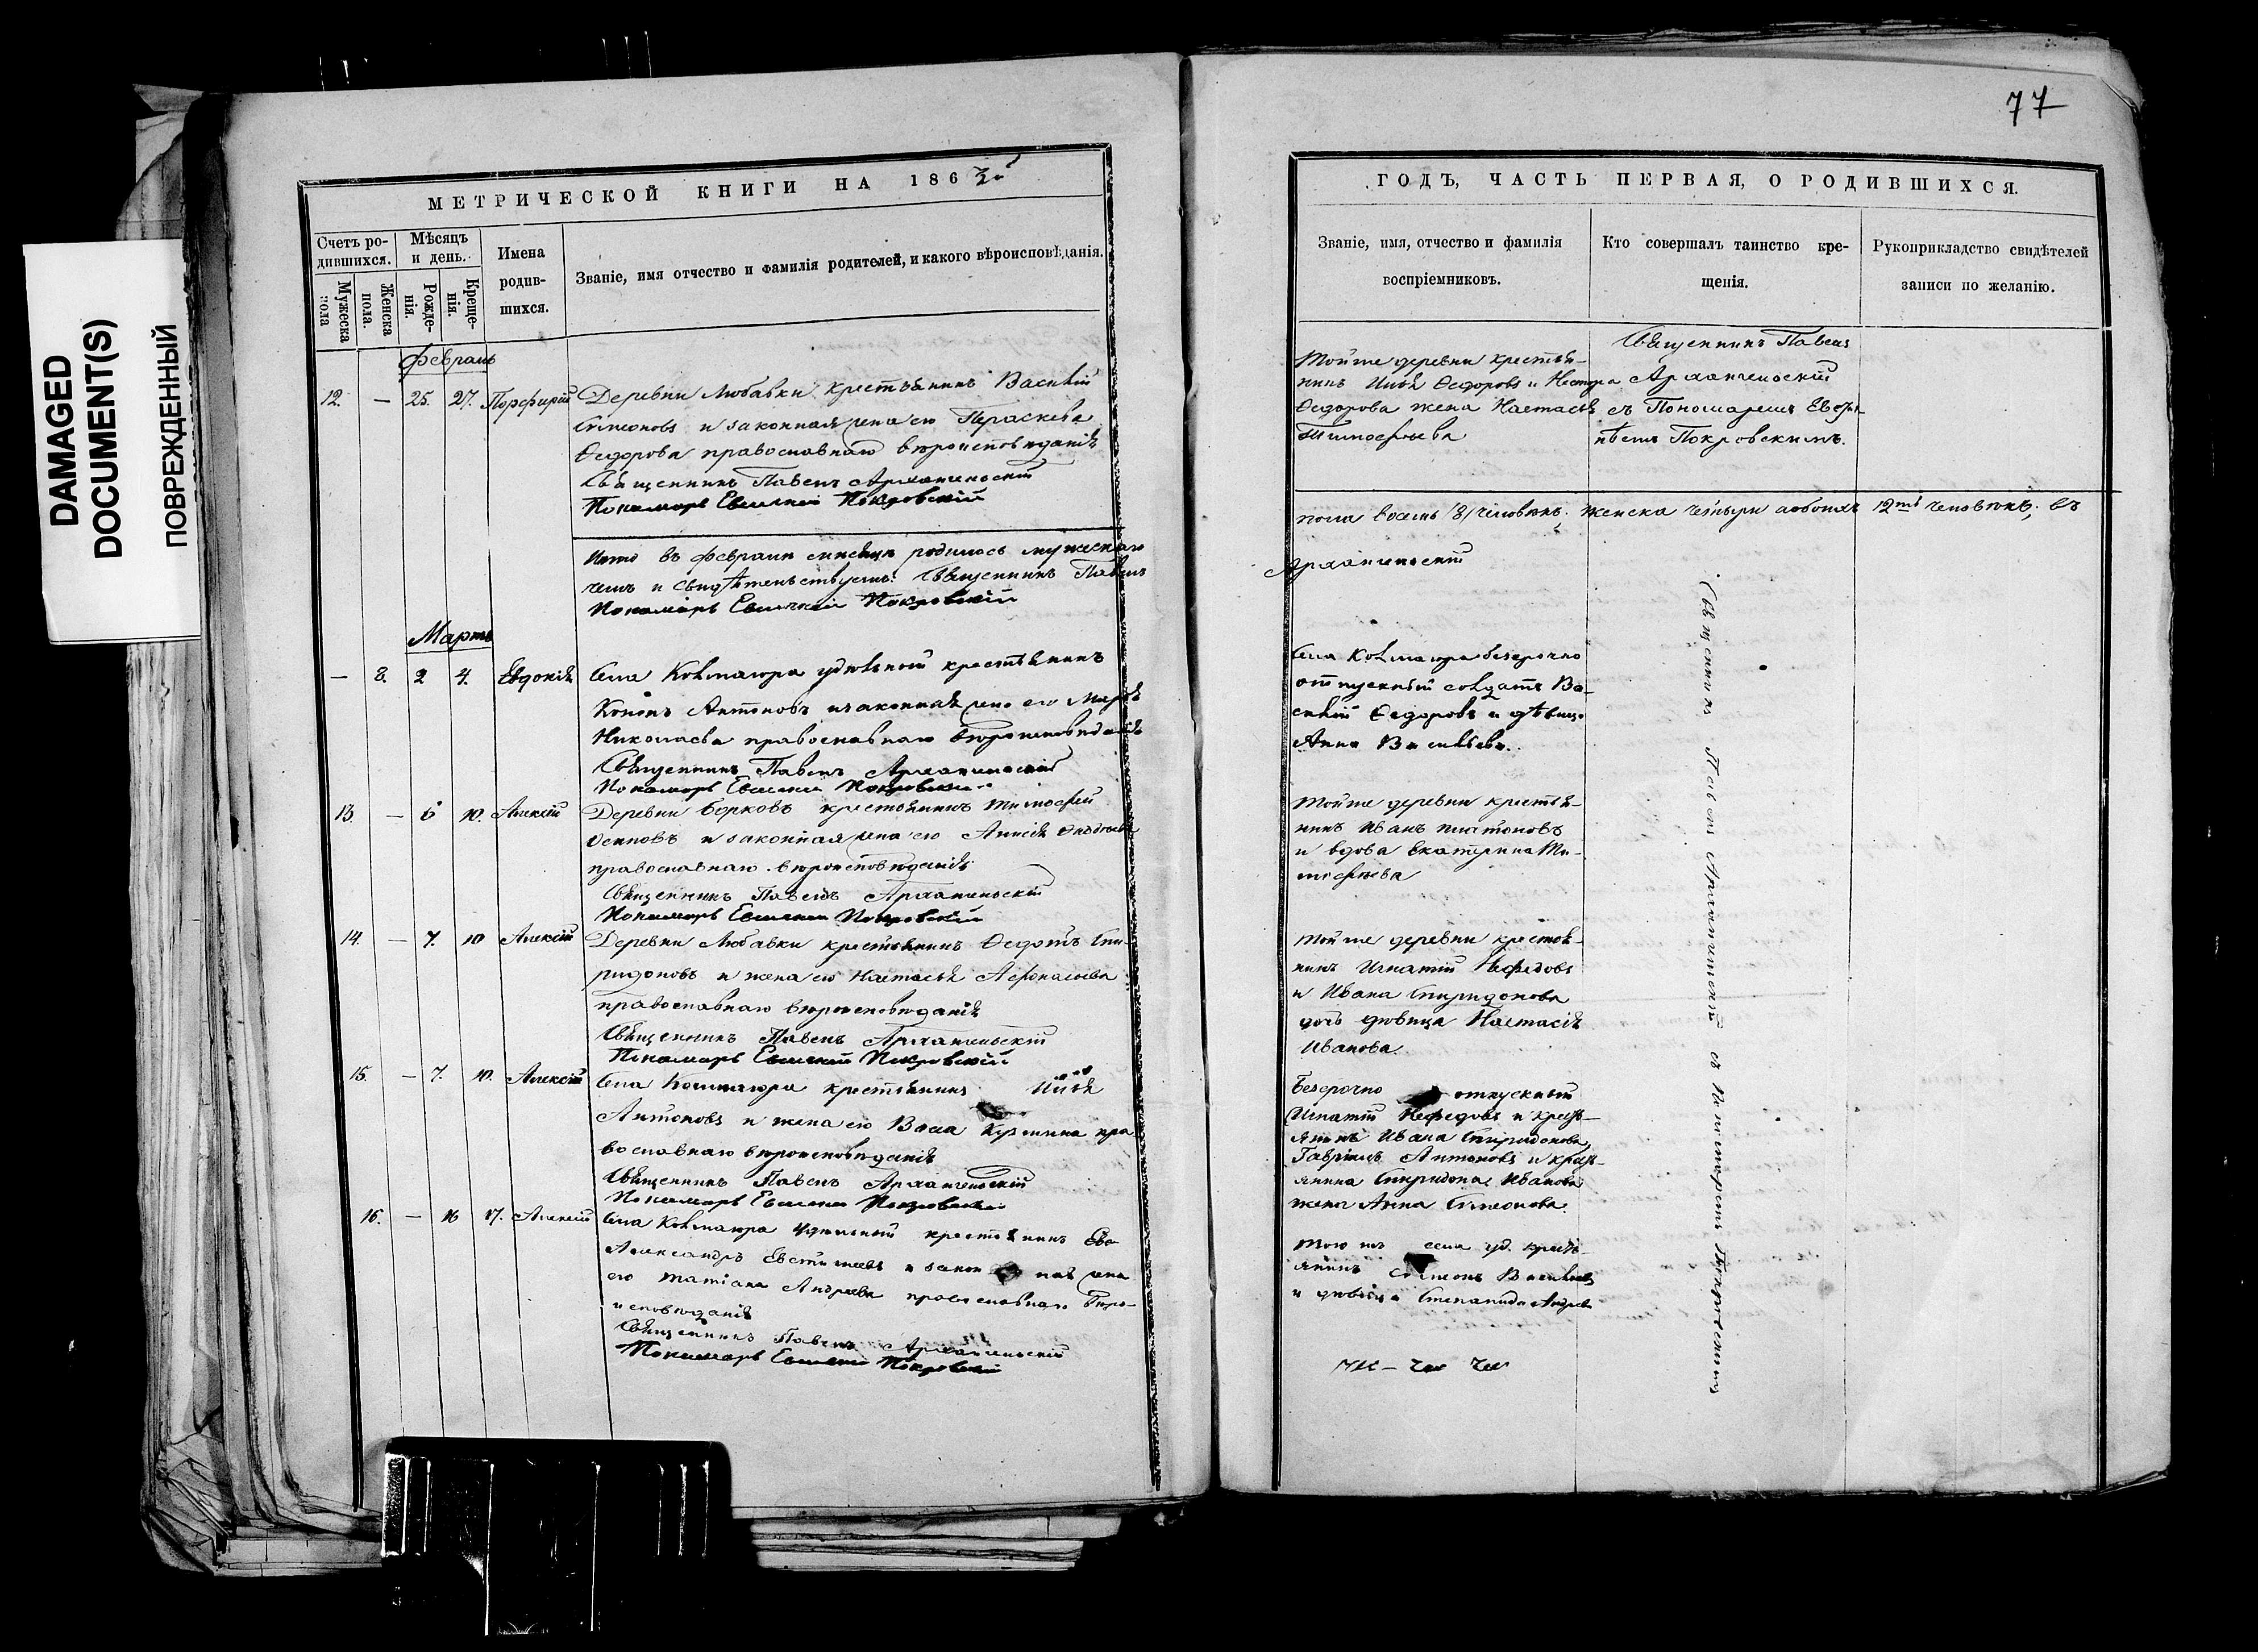 DAMAGED
DOCUMENT(S)
ПОВРЕЖДЕННЫЙ
77
МЕТРИЧЕСКОЙ КНИГИ НА 1863й
Счетъ ро-
дившихся.
Мѣсяцъ
и день.
Имена
родив-
шихся.
Званіе, имя отчество и фамилія родителей, и какого вѣроисповѣданія.
Мужеска
пола
Женска
пола.
Рожде-
нія.
Креще-
нія.
Февраль
12. — 25. 27. Порфирій Деревни Любавки крестьянинъ Василій
Симеоновъ и законная жена его Параскева
Ѳедорова православнаго вѣроисповѣданія
Священникъ Павелъ Архангельскій
Пономарь Покровскій
Итого въ Февралѣ мѣсяцѣ родилось мужескаго
чемъ и свидѣтельствуемъ: Священникъ Павелъ
Пономарь Покровскій
Мартъ
— 8. 2 4. Евдокія Села удѣльный крестьянинъ
Кононъ Антоновъ и законная жена его Марѳа
Николаева православнаго вѣроисповѣданія
Священникъ Павелъ Архангельскій
Пономарь Покровскій
13. — 6 10. Алексій Деревни Борковъ крестьянинъ Тимофей
Осиповъ и законная жена его Анисія
православнаго вѣроисповѣданія
Священникъ Павелъ Архангельскій
Пономарь Покровскій
14. — 7. 10 Алексій Деревни Любавки крестьянинъ Ѳедотъ Спи-
ридоновъ и жена его Настасья Афонасьева
православнаго вѣроисповѣданія
Священникъ Павелъ Архангельскій
Пономарь Покровскій
15. — 7. 10. Алексій Села крестьянинъ Илья
Антоновъ и жена его Васа Кузмина пра
вославнаго вѣроисповѣданія
Священникъ Павелъ Архангельскій
Пономарь Покровскій
16. — 16 17. Алексій Села удѣльный крестьянинъ
Александръ Евстигнеевъ и закон ная жена
его Татіана Андреева православнаго вѣро-
исповѣданія
Священникъ Павелъ Архангельскій
Пономарь Покровскій
ГОДЪ, ЧАСТЬ ПЕРВАЯ, О РОДИВШИХСЯ.
Званіе, имя, отчество и фамилія
воспріемниковъ.
Кто совершалъ таинство кре-
щенія.
Рукоприкладство свидѣтелей
записи по желанію.
Тойже деревни крестья-
нинъ Илья Ѳедоровъ и Нестора
Ѳедорова жена Настасья
Тимофеева
Священникъ Павелъ
Архангельскій
съ Пономаремъ
Покровскимъ.
пола восемь /8/ человѣкъ; женска четыри обоихъ 12ть человѣкъ; въ
Архангельскій
Села безсрочно
отпускный солдатъ Ва-
силій Ѳедоровъ и дѣвица
Анна Васильева.
Тойже деревни крестья-
нинъ Иванъ Платоновъ
и вдова Екатерина Ти-
мофеева
Тойже деревни крестья-
нинъ Игнатій Нефедовъ
и Ивана Спиридонова
дочь дѣвица Настасія
Иванова.
Безсрочно отпускный
Игнатій Нефедовъ и кресть-
янинъ Ивана Спиридонова
Гавріилъ Антоновъ и кресть-
янина Спиридона Иванова
жена Анна Симеонова.
Тогоже села уд. кресть-
янинъ Симеонъ Васильевъ
и дѣвица Степанида Андреева
Священникъ Павелъ Архангельскій съ Пономаремъ Покровскимъ